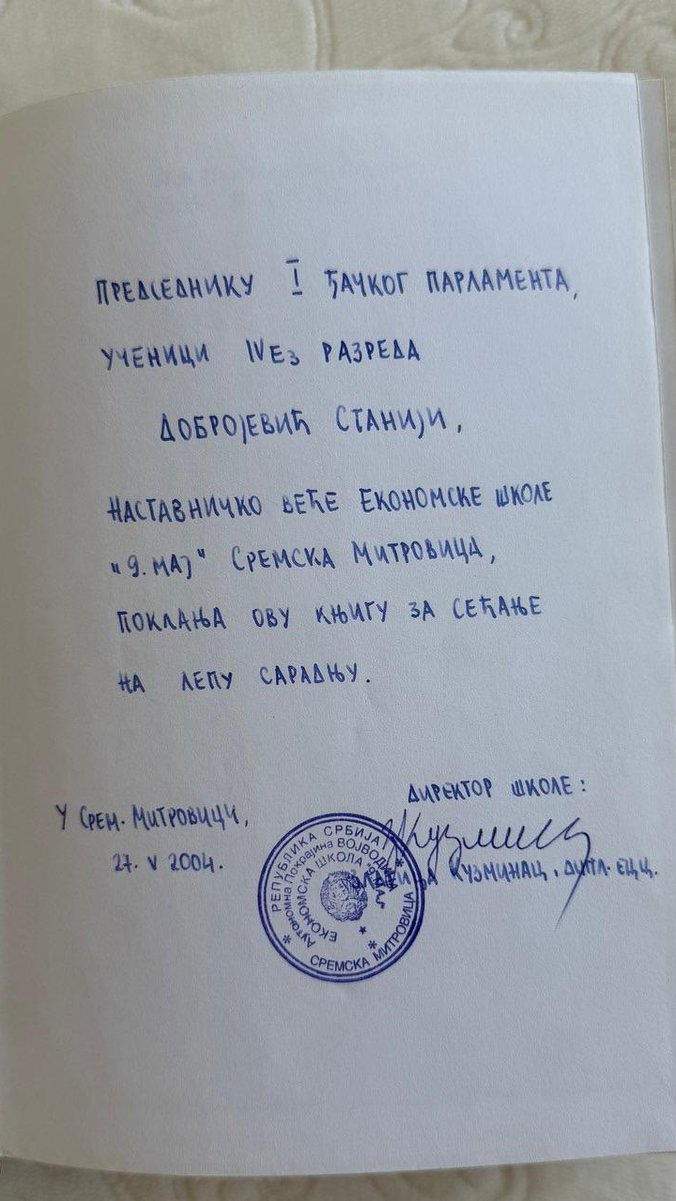 ПРЕДСЕДНИКУ I ЂАЧКОГ ПАРЛАМЕНТА,
УЧЕНИЦИ IVЕ3 РАЗРЕДА
ДОБРОЈЕВИЋ СТАНИЈИ,
НАСТАВНИЧКО ВЕЋЕ ЕКОНОМСКЕ ШКОЛЕ
"9. МАЈ" СРЕМСКА МИТРОВИЦА,
ПОКЛАЊА ОВУ КЊИГУ ЗА СЕЋАЊЕ
НА ЛЕПУ САРАДЊУ.
ДИРЕКТОР ШКОЛЕ:
У СРЕМ. МИТРОВИЦИ,
27. V 2004.
КУЗМИНАЦ, ДИПЛ. ЕЦЦ.
РЕПУБЛИКА СРБИЈА
АУТОНОМНА ПОКРАЈИНА ВОЈВОДИНА
ЕКОНОМСКА ШКОЛА "9. МАЈ"
СРЕМСКА МИТРОВИЦА